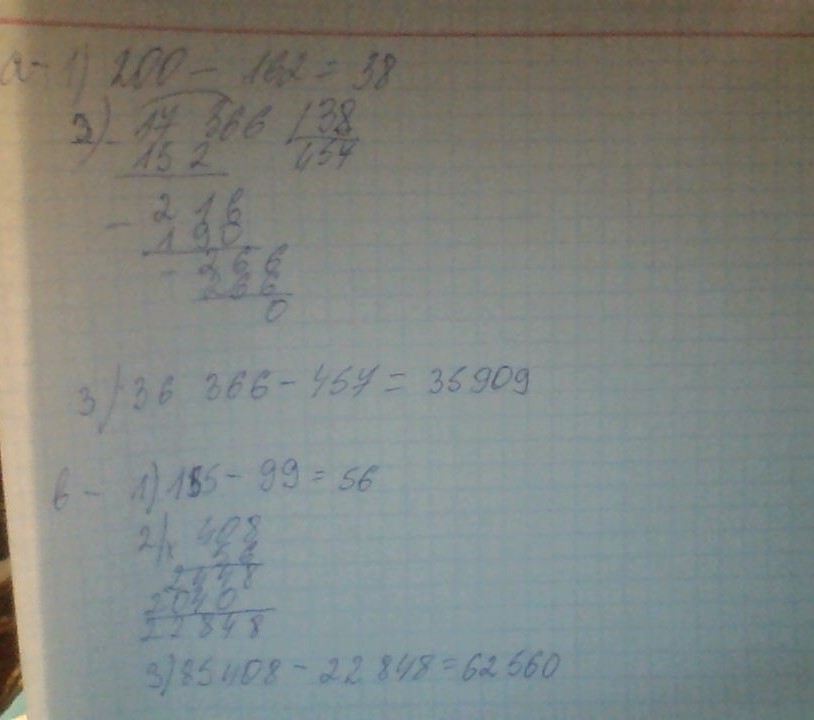 a - 1) 200 - 162 = 38
2) - 17 366 38
152 457
- 216
190
- 266
266
0
3) 36 366 - 457 = 35909
b - 1) 155 - 99 = 56
2) x 408
56
2448
2040
22848
3) 85408 - 22848 = 62560